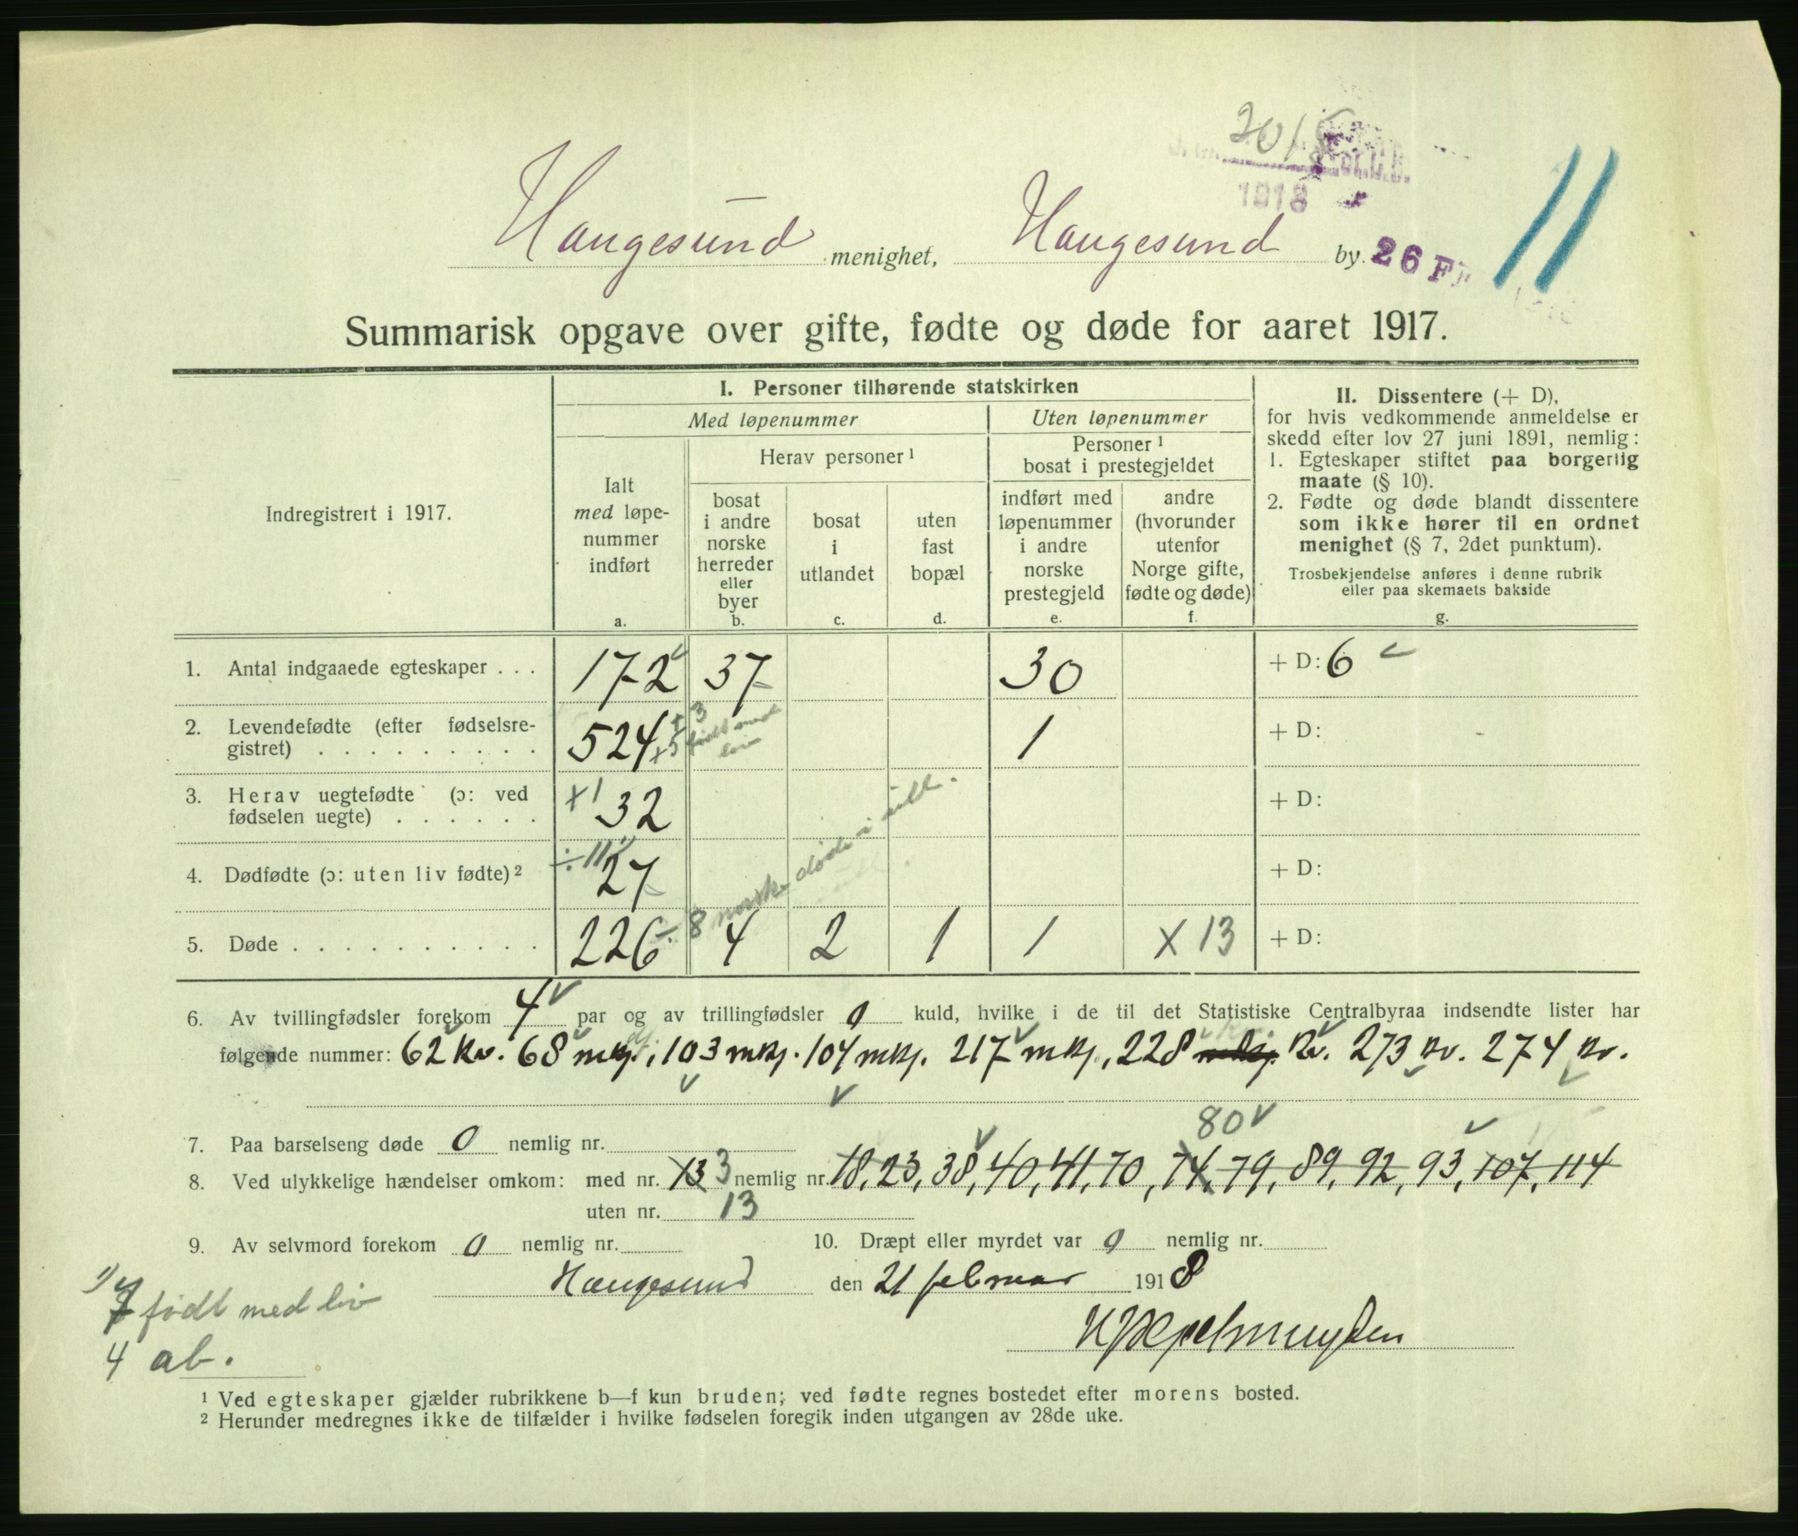 2015
1918
11
Haugesund menighet, Haugesund by.
26 F
Summarisk opgave over gifte, fødte og døde for aaret 1917.
Indregistrert i 1917.
I. Personer tilhørende statskirken
Med løpenummer
Uten løpenummer
Herav personer 1
Personer 1
bosat i prestegjeldet
Ialt
med løpe-
nummer
indført
a.
bosat
i andre
norske
herreder
eller
byer
b.
bosat
i
utlandet
c.
uten
fast
bopæl
d.
indført med
løpenummer
i andre
norske
prestegjeld
e.
andre
(hvorunder
utenfor
Norge gifte,
fødte og døde)
f.
II. Dissentere (+ D),
for hvis vedkommende anmeldelse er
skedd efter lov 27 juni 1891, nemlig:
1. Egteskaper stiftet paa borgerlig
maate (§ 10).
2. Fødte og døde blandt dissentere
som ikke hører til en ordnet
menighet (§ 7, 2det punktum).
Trosbekjendelse anføres i denne rubrik
eller paa skemaets bakside
g.
1. Antal indgaaede egteskaper . . . 172 37 30 + D: 6
2. Levendefødte (efter fødselsre-
gistret) . . . . . . . . . 524 + 3 + 5 født med liv 1 + D:
3. Herav uegtefødte (ɔ: ved
fødselen uegte) . . . . . . +1 32 + D:
4. Dødfødte (ɔ: uten liv fødte) 2 ÷ 11 27 + D:
8 norske døde i utl.
5. Døde . . . . . . . . . . 226 4 2 1 1 X 13 + D:
6. Av tvillingfødsler forekom 4 par og av trillingfødsler 0 kuld, hvilke i de til det Statistiske Centralbyraa indsendte lister har
følgende nummer: 62 kv. 68 mkj, 103 mkj. 104 mkj. 217 mkj, 228 kv. 273 kv. 274 kv.
80
7. Paa barselseng døde 0 nemlig nr.
8. Ved ulykkelige hændelser omkom: med nr. 13 3 nemlig nr. 18, 23, 38, 40, 41, 70, 74, 79, 89, 92, 93, 107, 114
uten nr. 13
9. Av selvmord forekom 0 nemlig nr. 10. Dræpt eller myrdet var 0 nemlig nr.
Haugesund den 21 februar 1918
1) 7 født med liv
4 ab.
1 Ved egteskaper gjælder rubrikkene b—f kun bruden; ved fødte regnes bostedet efter morens bosted.
2 Herunder medregnes ikke de tilfælder i hvilke fødselen foregik inden utgangen av 28de uke.